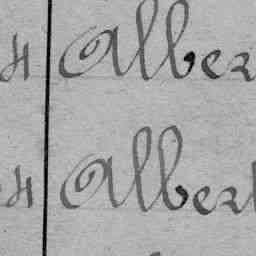 4 Alber
4 Albert